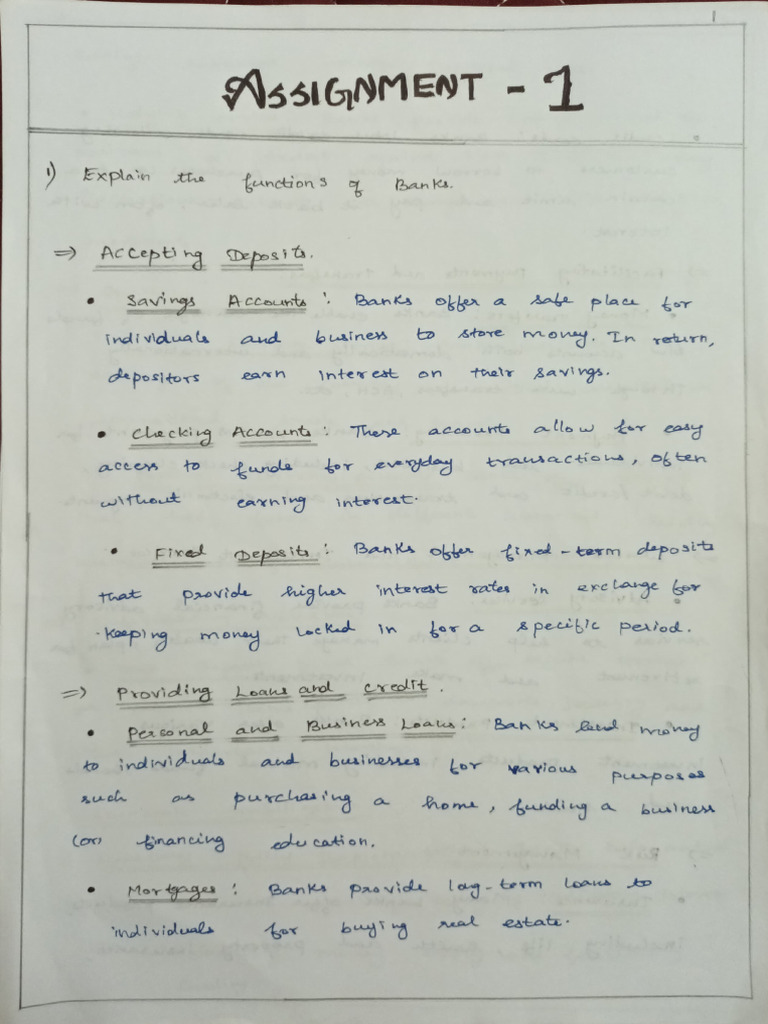 1
ASSIGNMENT - 1
1) Explain the functions of Banks.
=> Accepting Deposits.
• Savings Accounts : Banks offer a safe place for
individuals and business to store money. In return,
depositors earn interest on their savings.
• Checking Accounts : These accounts allow for easy
access to funds for everyday transactions, often
without earning interest.
• Fixed Deposits : Banks offer fixed-term deposits
that provide higher interest rates in exchange for
keeping money locked in for a specific period.
=> Providing Loans and credit.
• Personal and Business Loans : Banks lend money
to individuals and businesses for various purposes
such as purchasing a home, funding a business
(or) financing education.
• Mortgages : Banks provide log-term loans to
individuals for buying real estate.